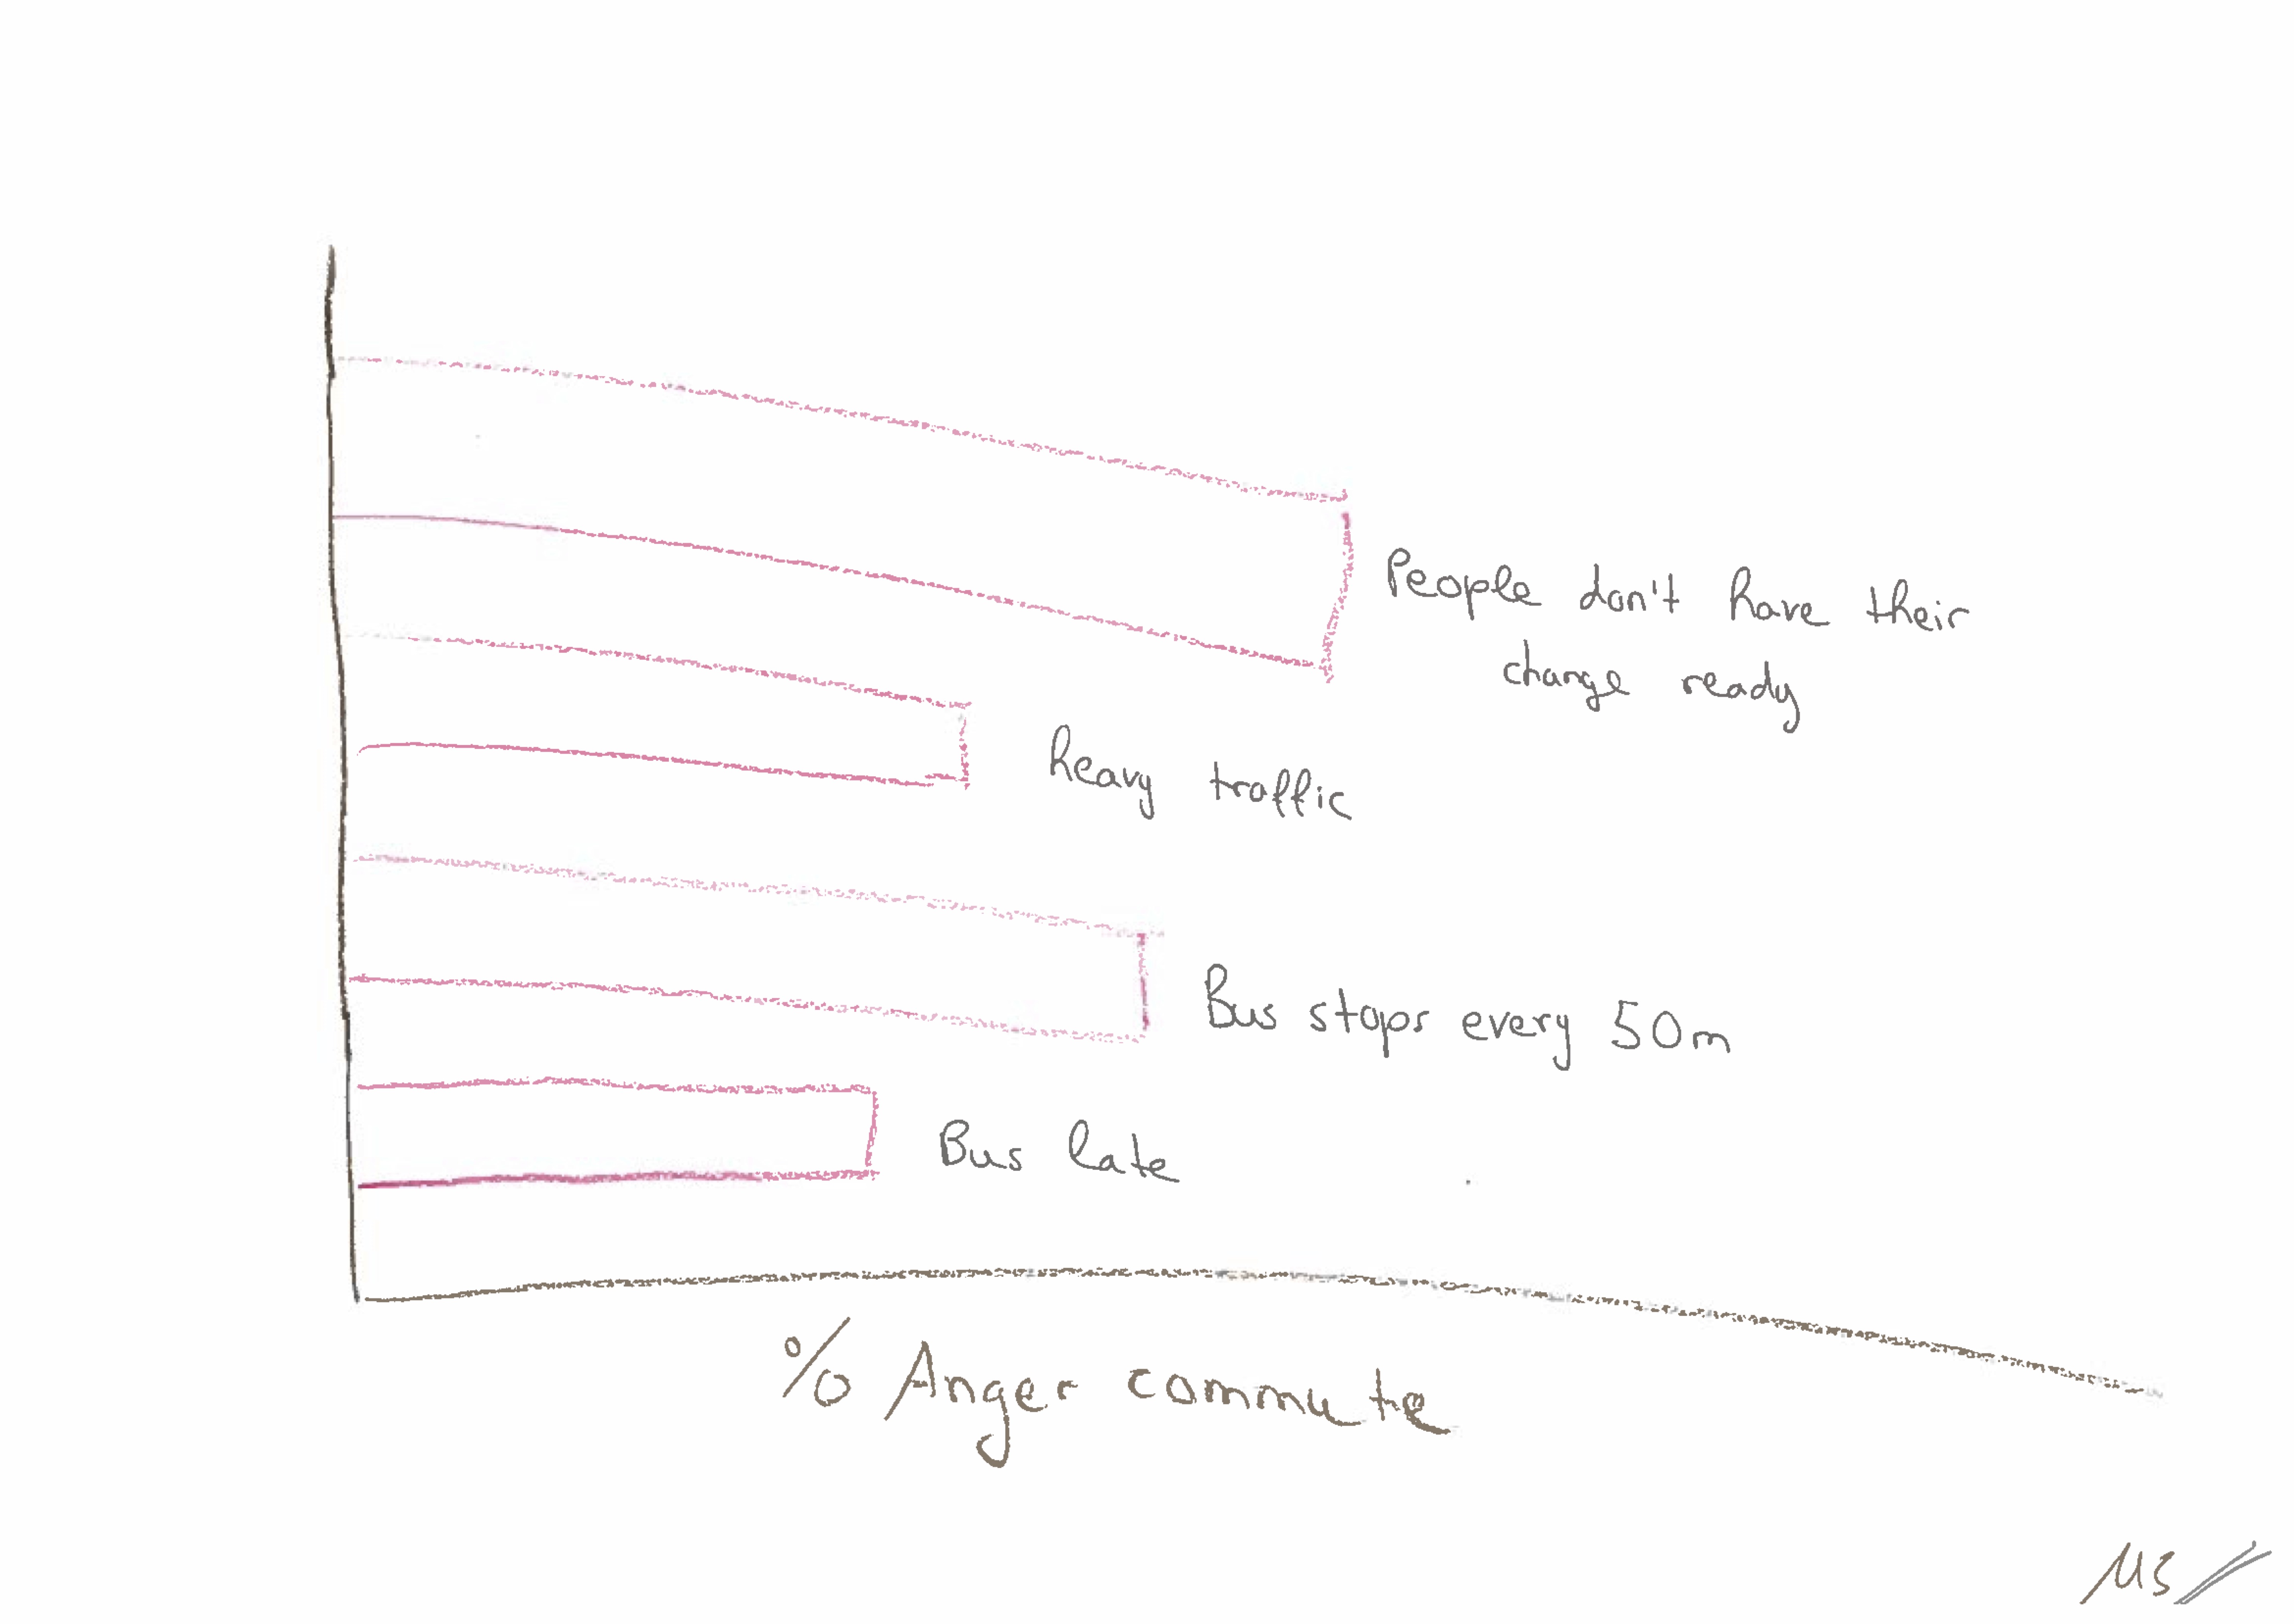 People don't have their
change ready
heavy traffic
Bus stops every 50m
Bus late
% Anger commute
MS